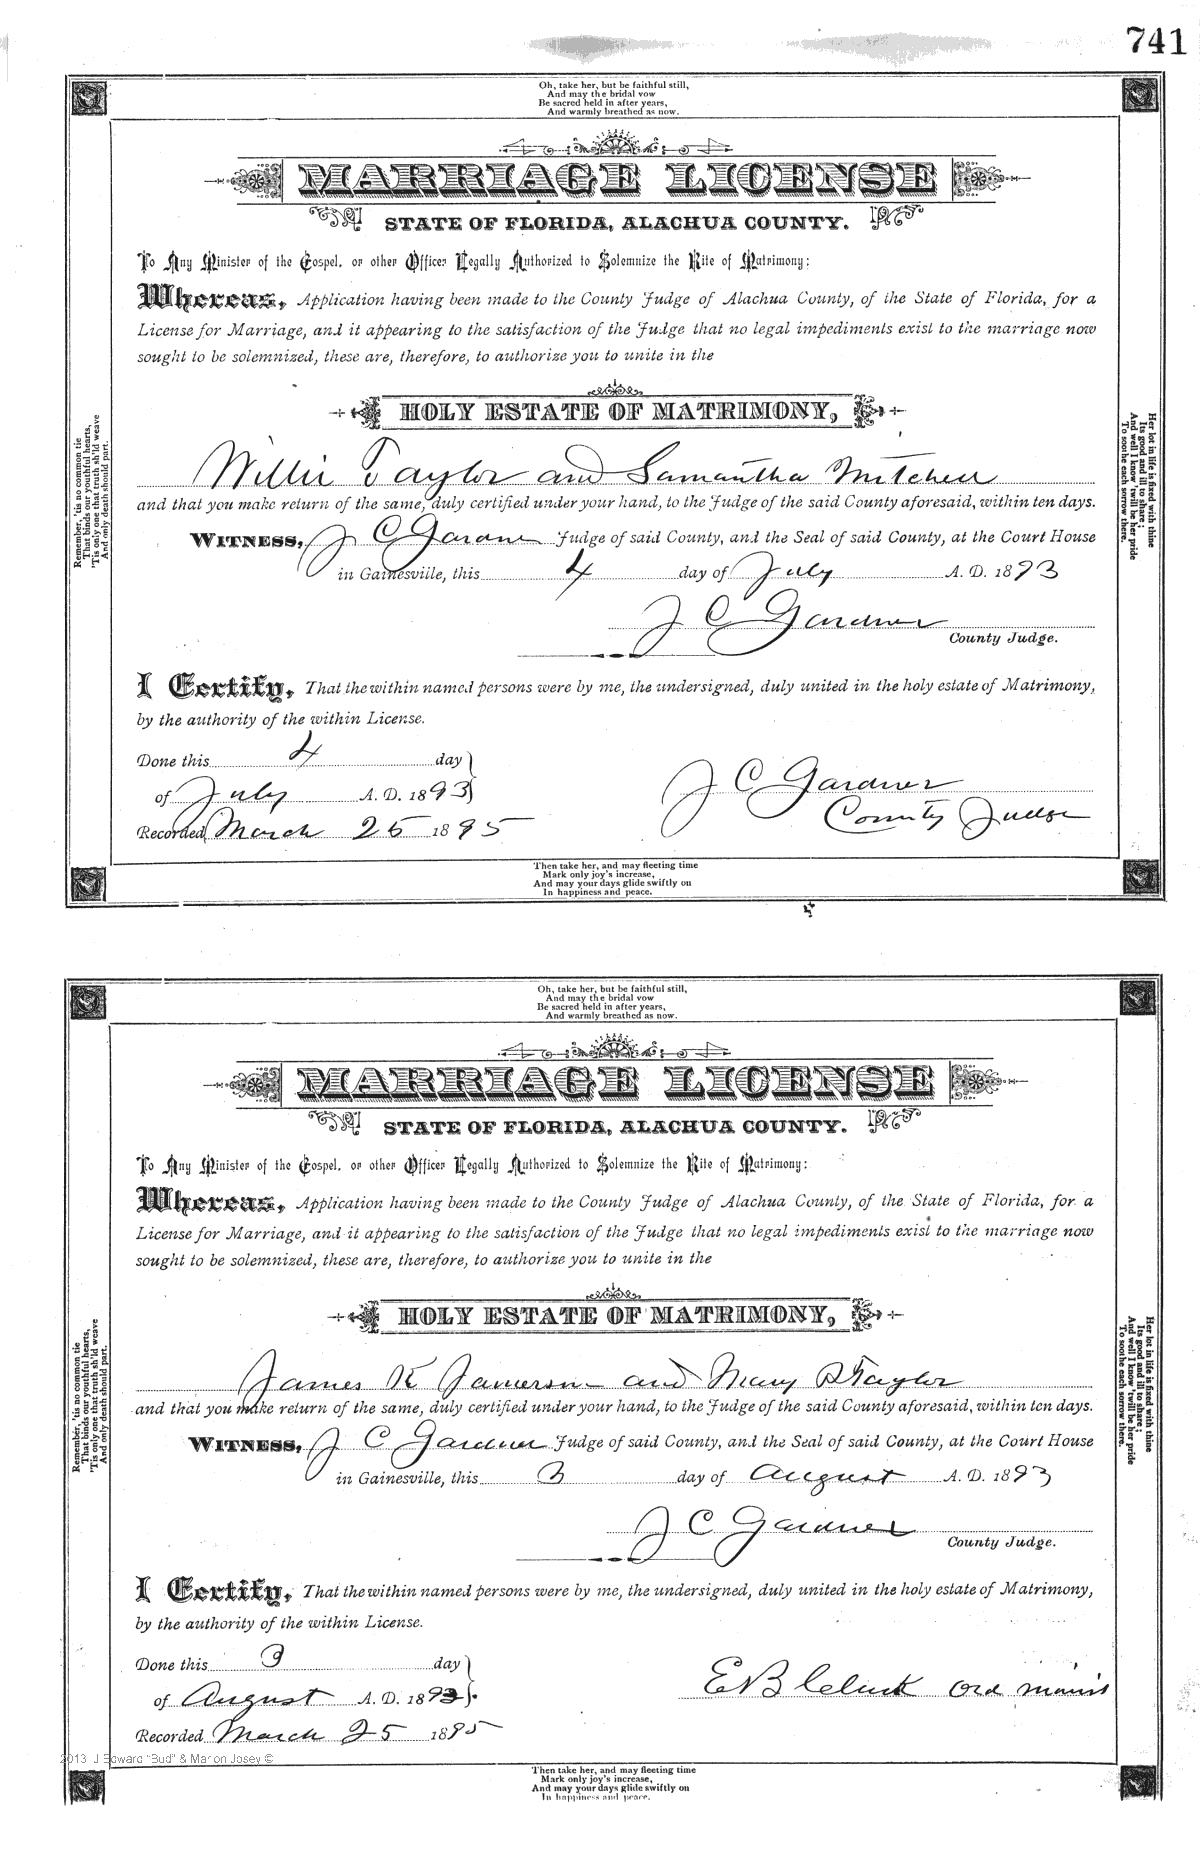 741
Oh, take her, but be faithful still,
And may the bridal vow
Be sacred held in after years,
And warmly breathed as now.
MARRIAGE LICENSE
STATE OF FLORIDA, ALACHUA COUNTY.
To Any Minister of the Gospel, or other Officer Legally Authorized to Solemnize the Rite of Matrimony:
Whereas, Application having been made to the County Judge of Alachua County, of the State of Florida, for a
License for Marriage, and it appearing to the satisfaction of the Judge that no legal impediments exist to the marriage now
sought to be solemnized, these are, therefore, to authorize you to unite in the
HOLY ESTATE OF MATRIMONY,
Willie Taylor and Samantha Mitchell
and that you make return of the same, duly certified under your hand, to the Judge of the said County aforesaid, within ten days.
WITNESS, J C Gardner Judge of said County, and the Seal of said County, at the Court House
in Gainesville, this 4 day of July A. D. 1893
J C Gardner
County Judge.
I Certify, That the within named persons were by me, the undersigned, duly united in the holy estate of Matrimony,
by the authority of the within License.
Done this 4 day
of July A. D. 1893
J C Gardner
County Judge
Recorded March 25 1895
Remember, 'tis no common tie
That binds our youthful hearts,
'Tis only one that truth sh'ld weave
And only death should part.
Her lot in life is fixed with thine
Its good and ill to share;
And well I know 'twill be her pride
To soothe each sorrow there.
Then take her, and may fleeting time
Mark only joy's increase,
And may your days glide swiftly on
In happiness and peace.
Oh, take her, but be faithful still,
And may the bridal vow
Be sacred held in after years,
And warmly breathed as now.
MARRIAGE LICENSE
STATE OF FLORIDA, ALACHUA COUNTY.
To Any Minister of the Gospel, or other Officer Legally Authorized to Solemnize the Rite of Matrimony:
Whereas, Application having been made to the County Judge of Alachua County, of the State of Florida, for a
License for Marriage, and it appearing to the satisfaction of the Judge that no legal impediments exist to the marriage now
sought to be solemnized, these are, therefore, to authorize you to unite in the
HOLY ESTATE OF MATRIMONY,
James K Jamerson and Mary Taylor
and that you make return of the same, duly certified under your hand, to the Judge of the said County aforesaid, within ten days.
WITNESS, J C Gardner Judge of said County, and the Seal of said County, at the Court House
in Gainesville, this 3 day of August A. D. 1893
J C Gardner
County Judge.
I Certify, That the within named persons were by me, the undersigned, duly united in the holy estate of Matrimony,
by the authority of the within License.
Done this 3 day
of August A. D. 1893
E B Ord minis
Recorded March 25 1895
Remember, 'tis no common tie
That binds our youthful hearts,
'Tis only one that truth sh'ld weave
And only death should part.
Her lot in life is fixed with thine
Its good and ill to share;
And well I know 'twill be her pride
To soothe each sorrow there.
2013 J Edward "Bud" & Marion Josey ©
Then take her, and may fleeting time
Mark only joy's increase,
And may your days glide swiftly on
In happiness and peace.